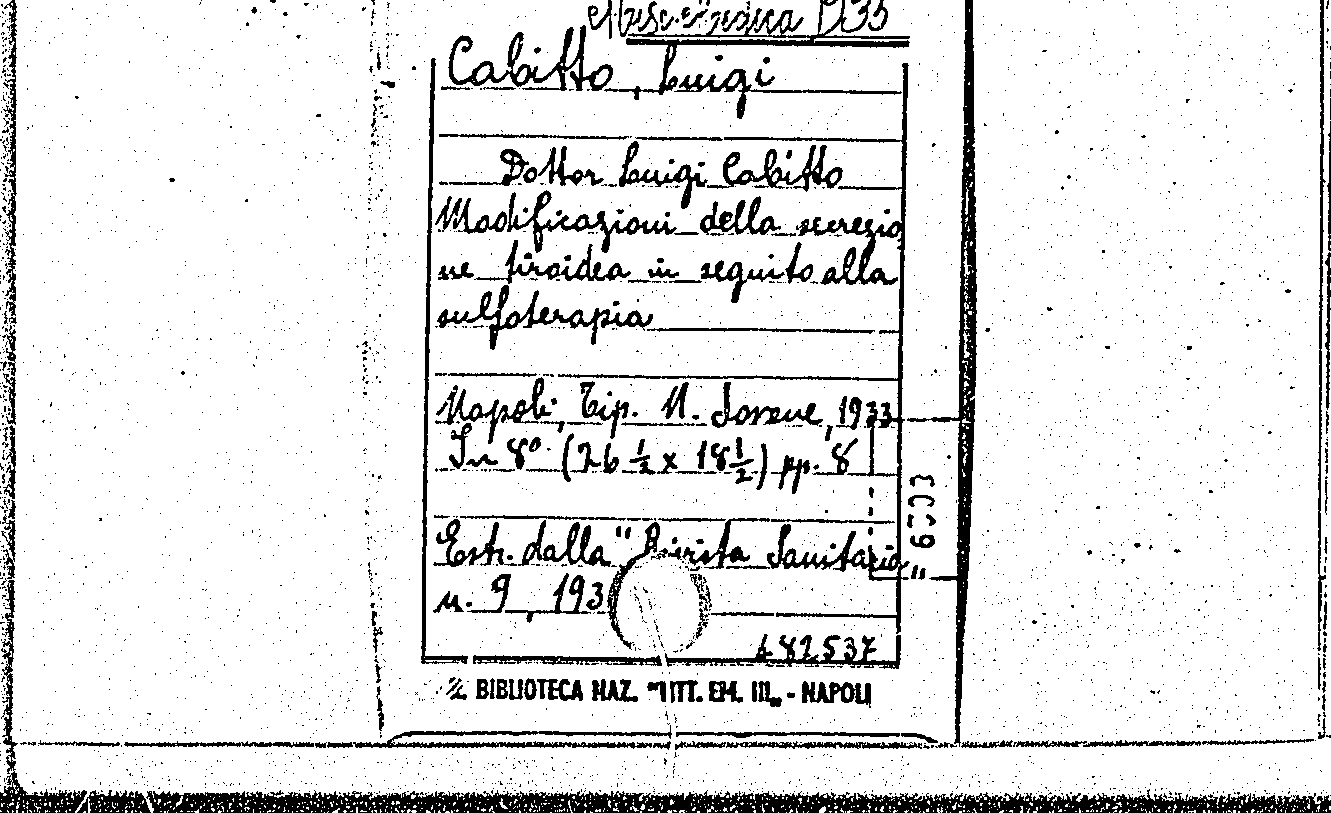 Cabitto, Luigi
Dottor Luigi Cabitto
Modificazioni della secrezio
ne tiroidea in seguito alla
sulfoterapia
Napoli, Tip. N. Jovene, 1933
In 8º. (26 ½ x 18 ½) pp. 8
Estr. dalla "Rivista Sanitaria
n. 9, 193
482537
BIBLIOTECA NAZ. "VITT. EM. III„ - NAPOLI